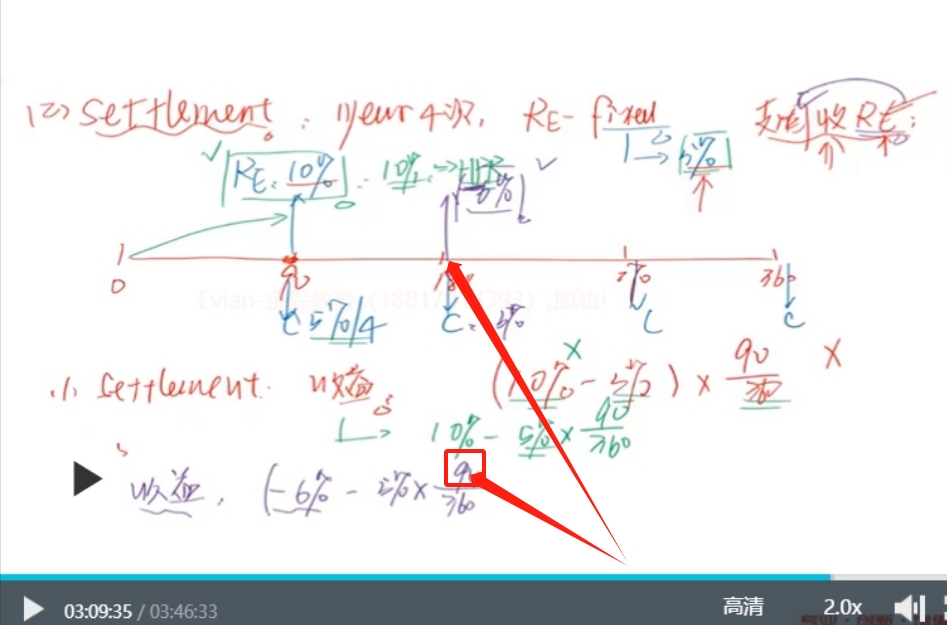 (2) settlement: 1year4次, RE- fixed 支固收RE;
RE: 10% : 10% → 5%
-6%
0 90 180 270 360
C 5%/4 C: 5% C C
(1) settlement 收益 (10% - 5%) × 90/360 ×
10% - 5% × 90/360
收益: (-6% - 5% × 90/360
03:09:35 / 03:46:33 高清 2.0x